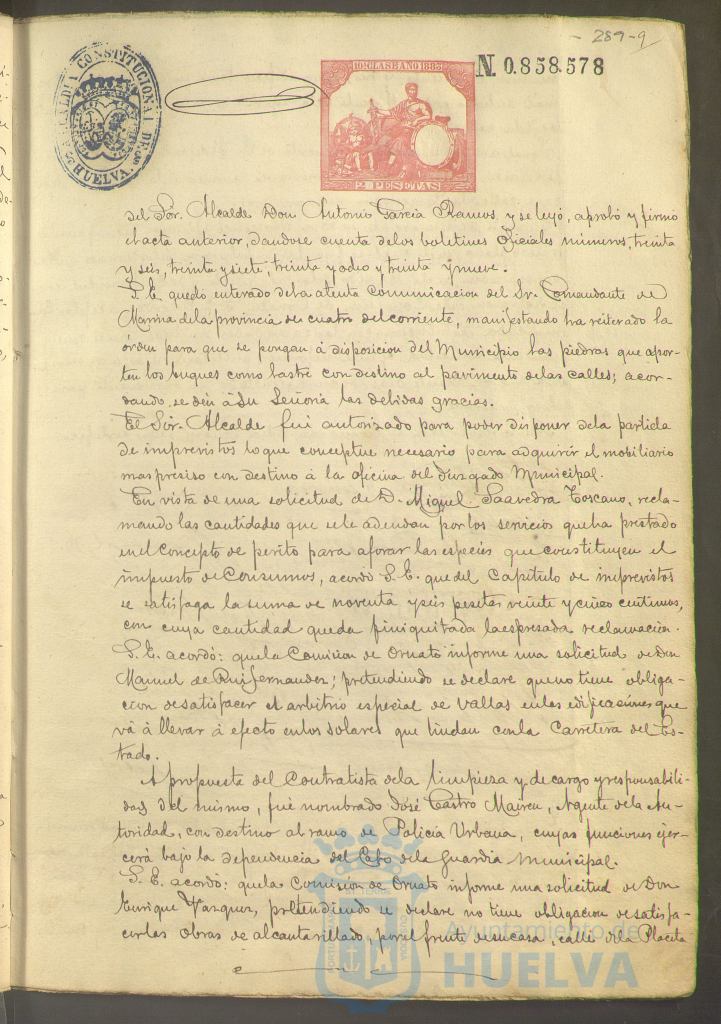 289-9
ALCALDIA CONSTITUCIONAL DE HUELVA
10ª CLASE AÑO 1885
2 PESETAS
N. 0.858.578
del Sor. Alcalde Don Antonio Garcia Ramos, y se leyó, aprobó y firmó
el acta anterior, dandose cuenta de los boletines Oficiales números, treinta
y seis, treinta y siete, treinta y ocho y treinta y nueve.
S. E. quedó enterado de la atenta comunicacion del Sr. Comandante de
Marina de la provincia de cuatro del corriente, manifestando ha reiterado la
órden para que se pongan á disposicion del Municipio las piedras que apor-
ten los buques como lastre con destino al pavimento de las calles; acor-
dando, se den á Su Señoria las debidas gracias.
El Sor. Alcalde fué autorizado para poder disponer de la partida
de imprevistos lo que conceptue necesario para adquirir el mobiliario
mas preciso con destino á la oficina del Juzgado Municipal.
En vista de una solicitud de D. Miguel Saavedra Toscano, recla-
mando las cantidades que se le adeudan por los servicios que ha prestado
en el concepto de perito para aforar las especies que constituyen el
impuesto de Consumos, acordó S. E. que del Capitulo de imprevistos
se satisfaga la suma de noventa y seis pesetas veinte y cinco centimos,
con cuya cantidad queda finiquitada la espresada reclamacion.
S. E. acordó: que la Comision de Ornato informe una solicitud de Don
Manuel de Rui fernandez; pretendiendo se declare que no tiene obliga-
cion de satisfacer el arbitrio especial de vallas en las edificaciones que
vá á llevar á efecto en los solares que lindan con la Carretera del Es-
tado.
A propuesta del Contratista de la limpieza y de cargo y responsabili-
dad del mismo, fué nombrado José Castro Maireu, Agente de la Au-
toridad, con destino al ramo de Policía Urbana, cuyas funciones ejer-
cerá bajo la dependencia del Cabo de la Guardia municipal.
S. E. acordó: que la Comision de Ornato informe una solicitud de Don
Enrique Vazquez, pretendiendo se declare no tiene obligacion de satisfa-
cer las obras de alcantarillado, por el frente de su casa, calles de la Placeta
Ayuntamiento de
HUELVA